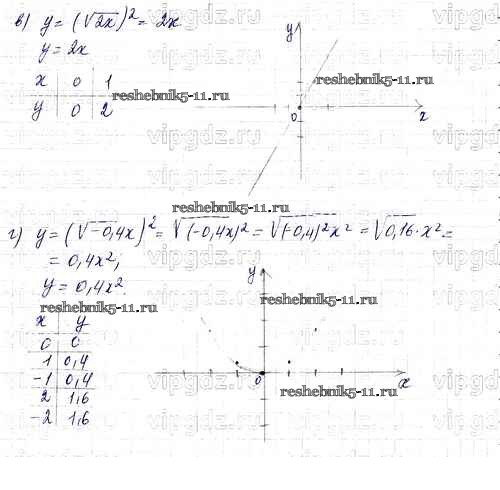 в) y = (√2x)² = 2x
y = 2x
x 0 1
y 0 2
y
0
x
reshebnik5-11.ru
reshebnik5-11.ru
reshebnik5-11.ru
г) y = (√-0,4x)² = √(-0,4x)² = √(-0,4)²x² = √0,16·x² =
= 0,4x²;
y = 0,4x².
reshebnik5-11.ru
reshebnik5-11.ru
x y
0 0
1 0,4
-1 0,4
2 1,6
-2 1,6
y
0
x
reshebnik5-11.ru
vipgdz.ru